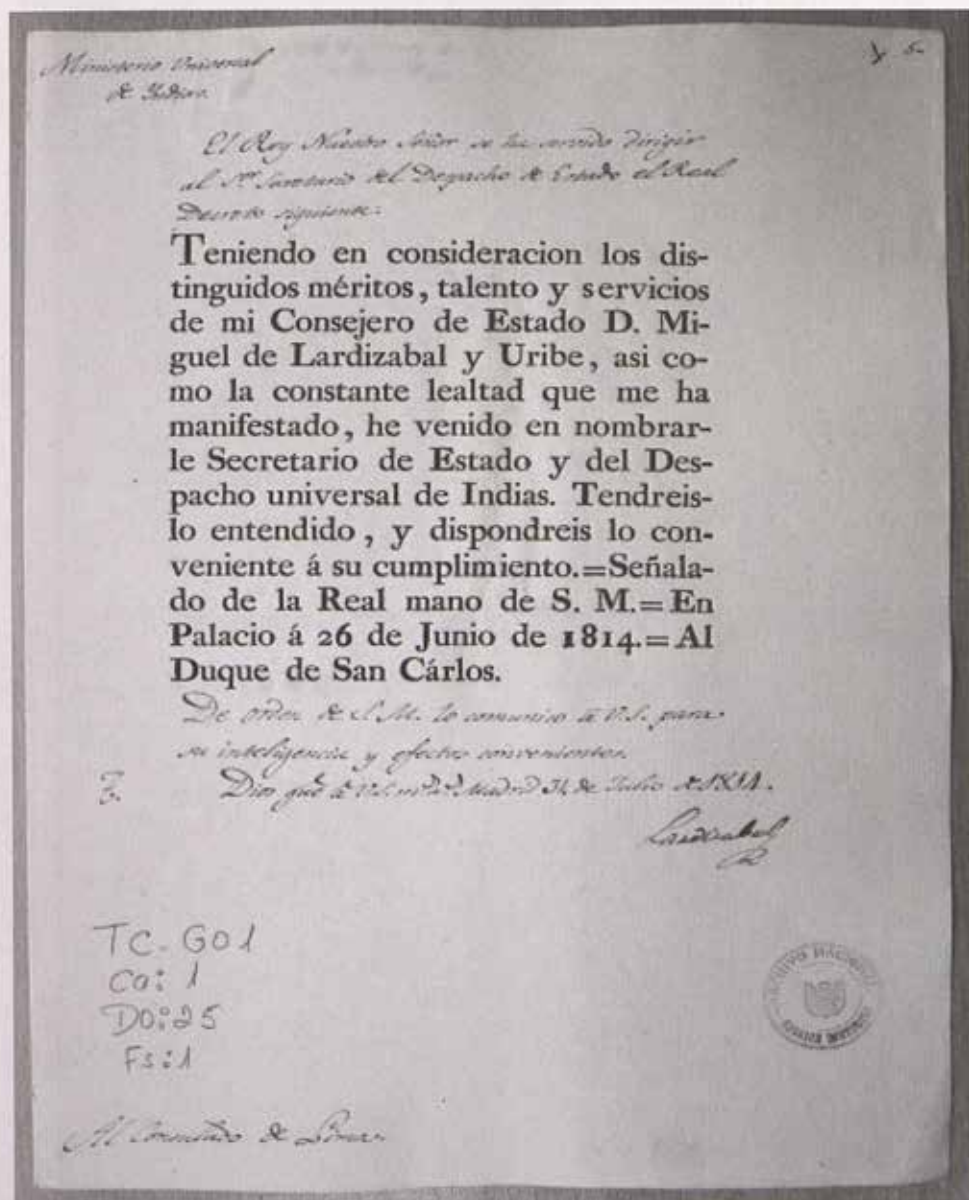 Ministerio Universal
de Indias.
5.
El Rey Nuestro Señor se ha servido dirigir
al Sr. Secretario del Despacho de Estado el Real
Decreto siguiente.
Teniendo en consideracion los dis-
tinguidos méritos, talento y servicios
de mi Consejero de Estado D. Mi-
guel de Lardizabal y Uribe, asi co-
mo la constante lealtad que me ha
manifestado, he venido en nombrar-
le Secretario de Estado y del Des-
pacho universal de Indias. Tendreis-
lo entendido, y dispondreis lo con-
veniente á su cumplimiento.=Señala-
do de la Real mano de S. M.=En
Palacio á 26 de Junio de 1814.=Al
Duque de San Cárlos.
De orden de S. M. lo comunico à V.S. para
su inteligencia y efectos convenientes.
Dios gue à V.S. ms as Madrid 31 de Julio de 1814.
Lardizabal
TC-GO1
Ca: 1
DO:25
FS:1
ARCHIVO NACIONAL
Al Consulado de Lima.